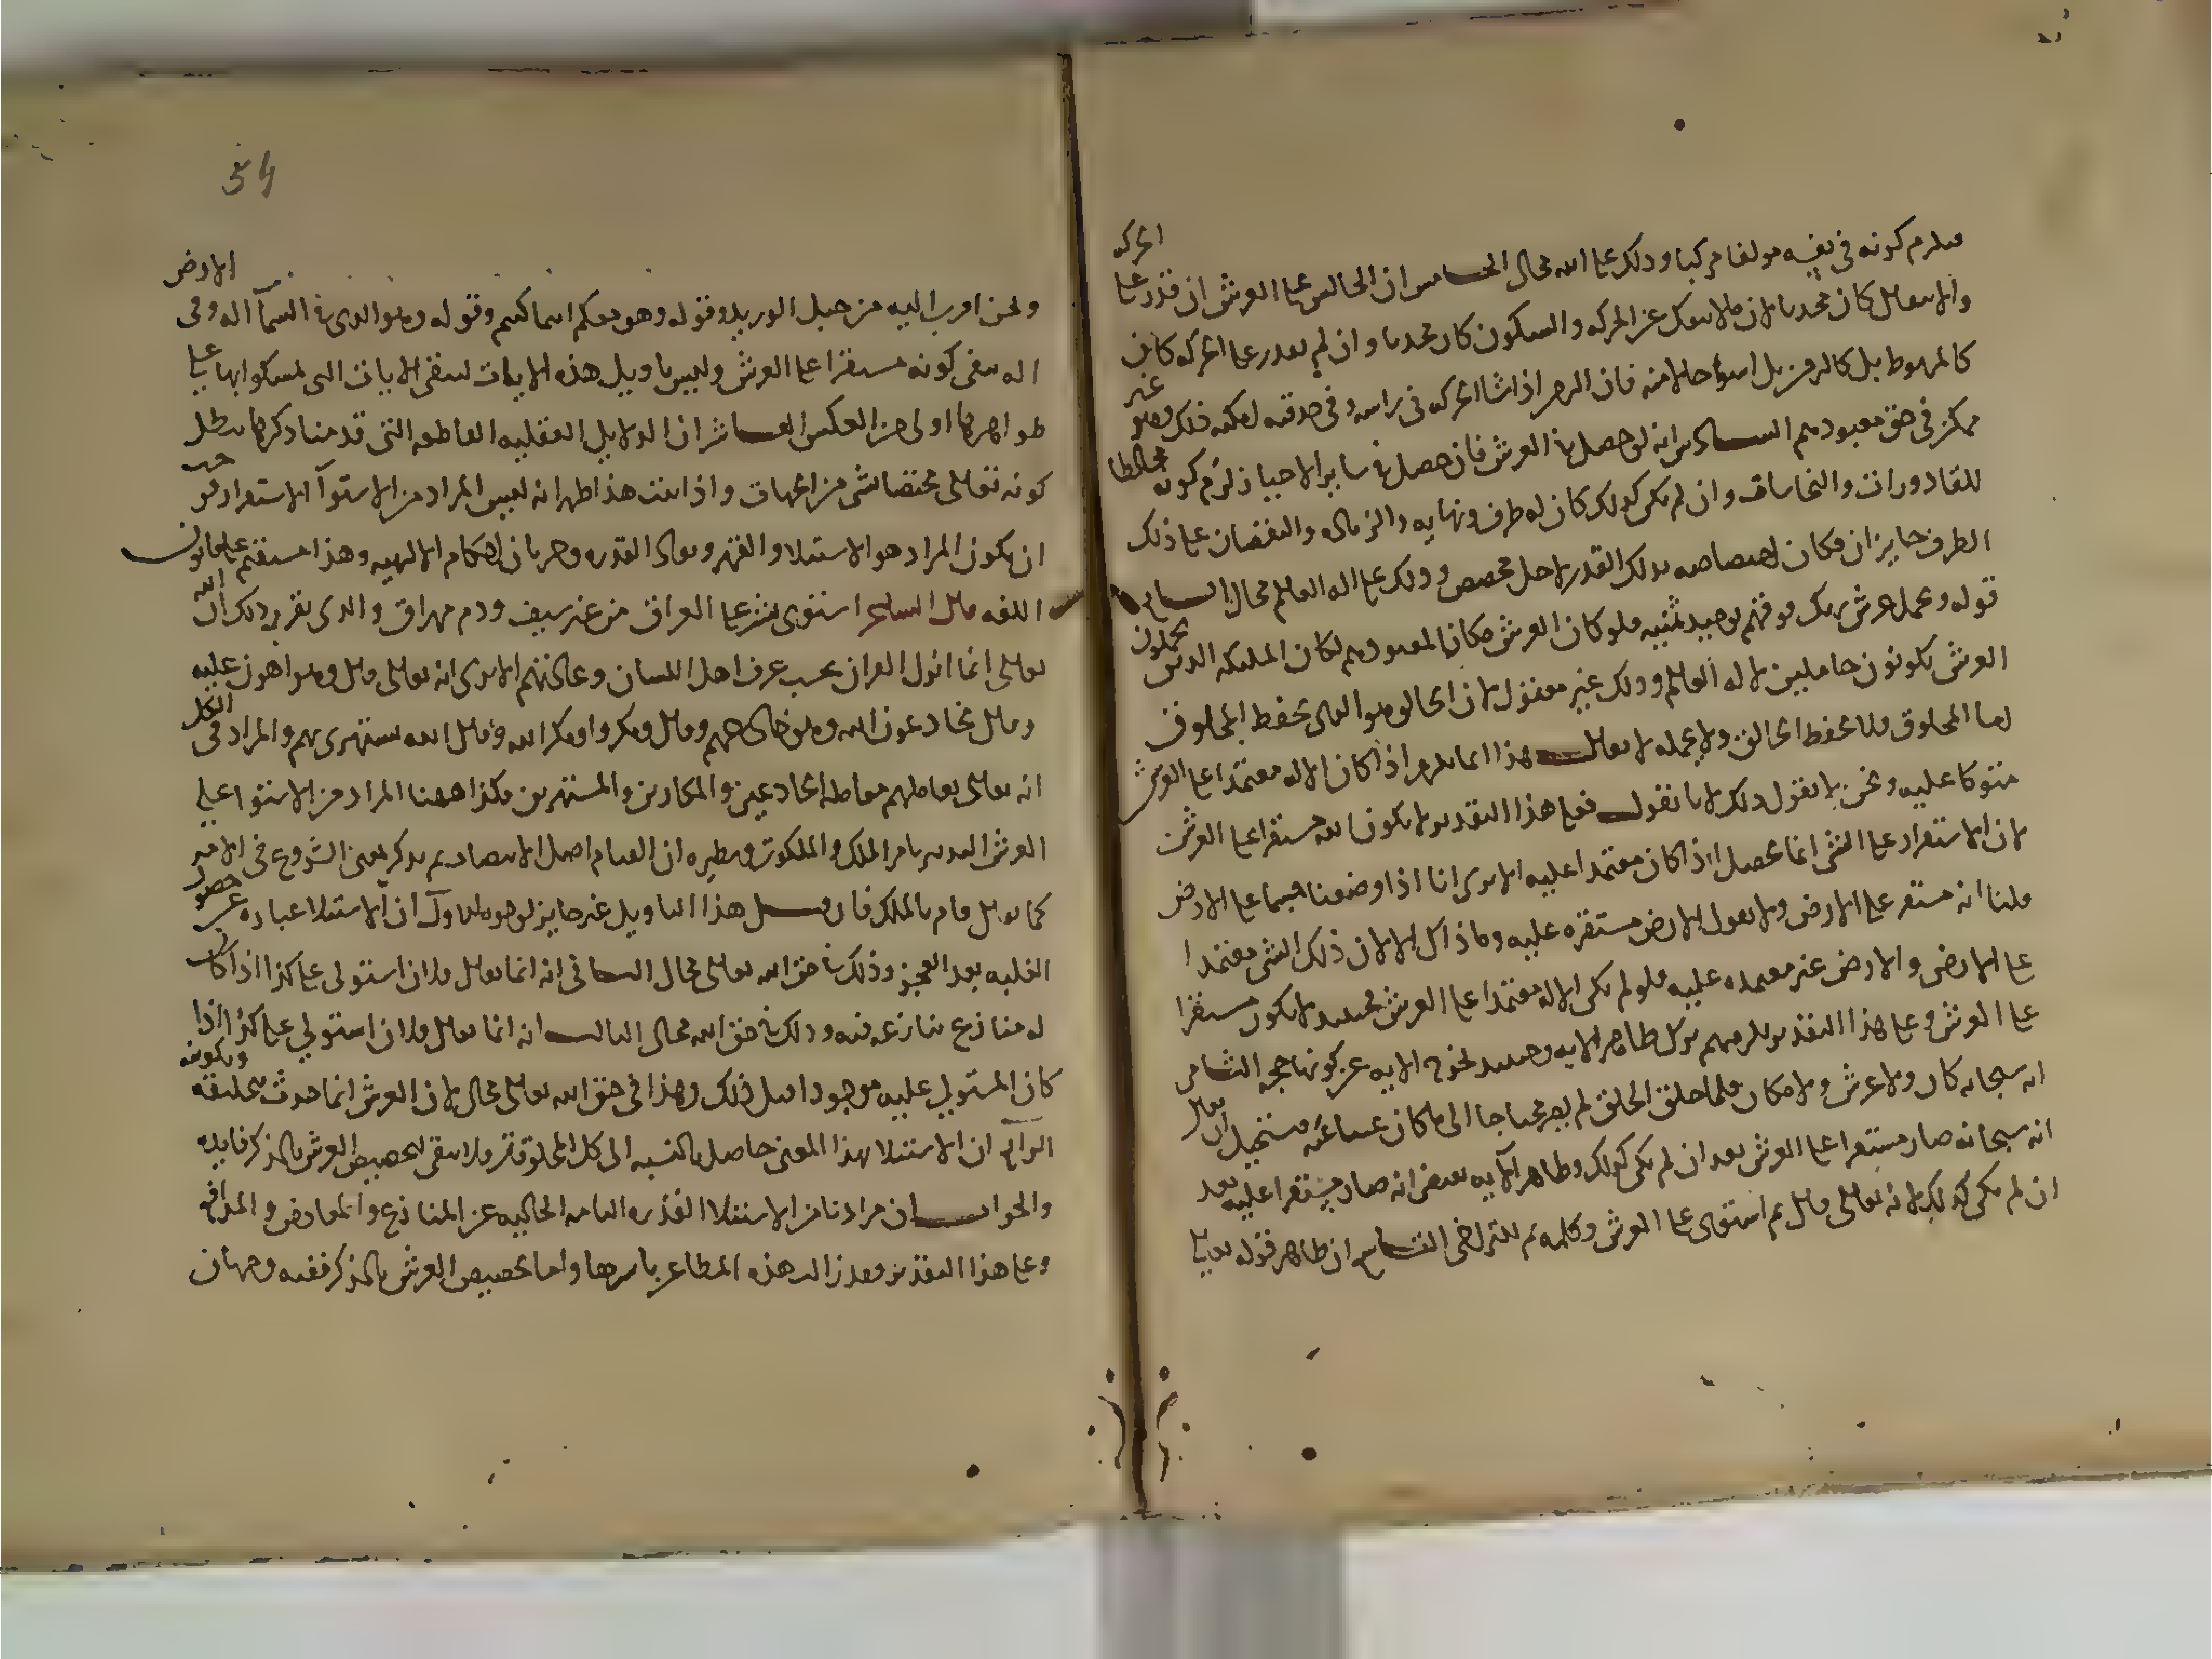 فيلزم كونه في نفسه مولفا مركبا وذلك على الله محال الخامس ان الجالس على العرش ان قدر على الحركه
والانتقال كان محدثا لان ما لا ينفك عن الحركه والسكون كان محدثا وان لم يقدر على الحركه كان
كالمربوط بل كالزمن بل اسوأ حالا منه فان الزمن اذا شا الحركه في راسه وفي حدقته امكنه ذلك وهو غير
ممكن في حق معبودهم السادس انه لو حصل في العرش فان حصل في ساير الاحياز لزم كونه مخالطا
للقاذورات والنجاسات وان لم يكن كذلك كان له طرف ونهايه والزياده والنقصان على ذلك
الطرف جايزان فكان اختصاصه بذلك القدر لاجل مخصص وذلك على اله العالم محال السابع
قوله وتحمل عرش ربك فوقهم يوميذ ثمنيه فلو كان العرش مكانا لمعبودهم لكان المليكه الذين يحملون
العرش يكونون حاملين لاله العالم وذلك غير معقول لان الخالق هو الذي يحفظ المخلوق
اما المخلوق فلا يحفظ الخالق ولا يحمله لا يقال هذا انما يلزم اذا كان الاله معتمدا على العرش
متوكا عليه ونحن لا نقول ذلك لانا نقول فعلى هذا التقدير لا يكون الله مستقرا على العرش
لان الاستقرار على الشي انما يحصل اذا كان معتمدا عليه الا ترى انا اذا وضعنا جسما على الارض
قلنا انه مستقر على الارض ولا نقول الارض مستقره عليه وما ذاك الا لان ذلك الشي معتمدا
على الارض والارض غير معتمده عليه فلو لم يكن الاله معتمدا على العرش فحينيذ لا يكون مستقرا
على العرش وعلى هذا التقدير يلزمهم ترك ظاهر الايه وحينيذ تخرج الايه عن كونها حجه الثامن
انه سبحانه كان ولا عرش ولا مكان فلما خلق الخلق لم يصر محتاجا الى ما كان غنيا عنه فيستحيل ان يقال
انه سبحانه صار مستقرا على العرش بعد ان لم يكن كذلك وظاهر الآيه يقتضي انه صار مستقرا عليه بعد
ان لم يكن كذلك لانه تعالى قال ثم استوى على العرش وكلمه ثم للتراخي التاسع ان ظاهر قوله تعالى
54
ونحن اقرب اليه من حبل الوريد وقوله وهو معكم اينما كنتم وقوله وهو الذي في السمآ اله وفي الارض
اله ينفي كونه مستقرا على العرش وليس تاويل هذه الايات لتبقى الايات التي تمسكوا بها على
ظواهرها اولى من العكس العاشر ان الدلايل العقليه القاطعه التي قدمنا ذكرها تبطل
كونه تعالى مختصا بشي من الجهات واذا ثبت هذا ظهر انه ليس المراد من الاستوآ الاستقرار فوجب
ان يكون المراد هو الاستيلا والقهر ونفاذ القدره وجريان احكام الالهيه وهذا مستقيم على قانون
اللغه قال الشاعر استوى بشر على العراق من غير سيف ودم مهراق والذي يقرر ذلك ان الله
تعالى انما انزل القران بحسب عرف اهل اللسان وعادتهم الا ترى انه تعالى قال وهو اهون عليه
وقال يخادعون الله وهو خادعهم وقال ومكروا ومكر الله وقال الله يستهزي بهم والمراد في الكل
انه تعالى يعاملهم معامله الخادعين والمكارين والمستهزين فكذا ههنا المراد من الاستوا على
العرش التدبير بامر الملك والملكوت ونظيره ان القيام اصله الانتصاب ثم يذكر بمعنى الشروع في الامر
كما يقال قام بالملك فان قيل هذا التاويل غير جايز لوجوه الاول ان الاستيلا عباره عن حصول
الغلبه بعد العجز وذلك في حق الله تعالى محال الثاني انه انما يقال فلان استولى على كذا اذا كان
له منازع ينازعه فيه وذلك في حق الله محال الثالث انه انما يقال فلان استولى على كذا اذا
كان المستولي عليه موجودا قبل ذلك وهذا في حق الله تعالى محال لان العرش انما حدث بتخليقه وتكوينه
الرابع ان الاستيلا بهذا المعنى حاصل بالنسبه الى كل المخلوقات فلا يبقى لتخصيص العرش بالذكر فايده
والجواب ان مرادنا من الاستيلا القدره التامه الخاليه عن المنازع والمعارض والمدافع
وعلى هذا التقدير فقد زالت هذه المطاعن باسرها واما تخصيص العرش بالذكر ففيه وجهان